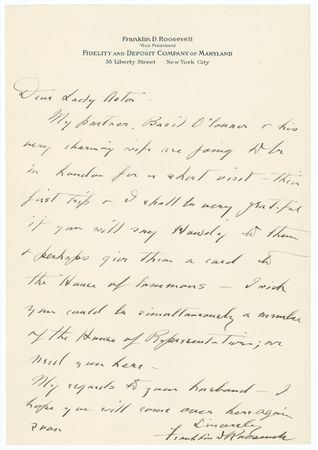 Franklin D. Roosevelt
Vice President
Fidelity and Deposit Company of Maryland
55 Liberty Street New York City
Dear Lady Astor -
My partner, Basil O'Connor & his
very charming wife are going to be
in London for a short visit - their
first trip & I shall be very grateful
if you will say Howdy to them
& perhaps give them a card to
the House of Commons - I wish
you could be simultaneously a member
of the House of Representatives; we
need you here -
My regards to your husband - I
hope you will come over here again
soon
Sincerely
Franklin D Roosevelt